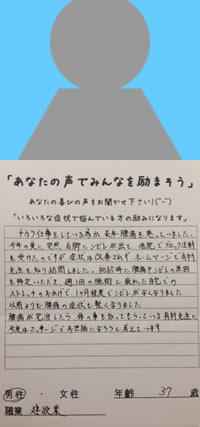 「あなたの声でみんなを励まそう」
あなたの喜びの声をお聞かせ下さい!(^-^)
「いろいろな症状で悩んでいる方の励みになります」
チカラ仕事をしている為か長年腰痛を患っていました。
今年の夏に突然、右脚にシビレが出て他院でブロック注射
を受けたのですが症状は改善されず、ホームページで有村
先生を知り訪問しました。初診時に腰痛やシビレの原因
を特定いただき、週1回の施術と疲れた自宅での
ストレッチのおかげで1ヶ月程度でシビレがなくなりました
以前よりも腰痛の症状も軽くなりました
腰痛が完治したら、体の事を知ってもらっている有村先生に
今度はマッサージでお世話になろうと考えています
男性 ・ 女性 年齢 37 歳
職業 建設業